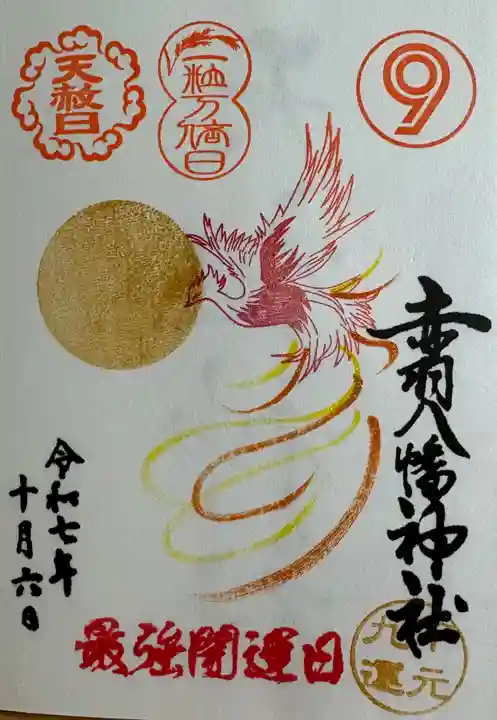 天赦日
一粒万倍日
9
赤羽八幡神社
令和七年
十月六日
最強開運日
下元
九運